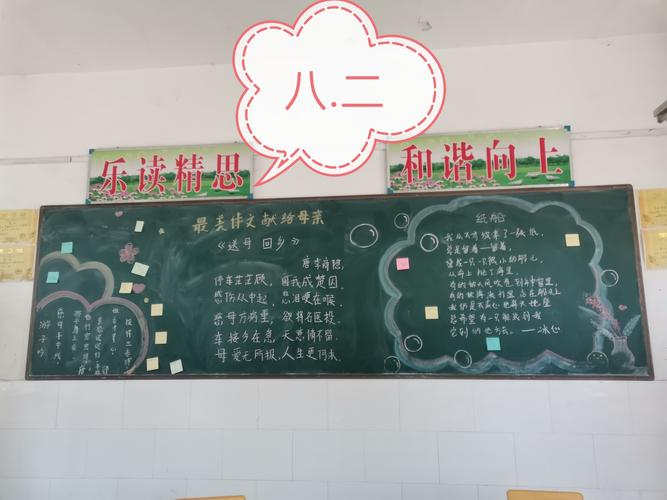 八.二
乐读精思
和谐向上
最美诗文献给母亲
《送母回乡》
唐 李商隐
停车茫茫顾,困我成楚囚。
感伤从中起,悲泪哽在喉。
慈母方病重,欲将名医投。
车接今在急,天竟情不留。
母爱无所报,人生更何求。
纸船
我从不肯妄弃了一张纸,
总是留着——留着,
叠成一只一只很小的船儿,
从舟上抛下海里。
有的被天风吹卷到舟中窗里,
有的被海浪打湿,沾在船头上
我仍是不灰心地每天地叠
总希望有一只能流到我
它到的地方去。——冰心
游子吟
慈母手中线,